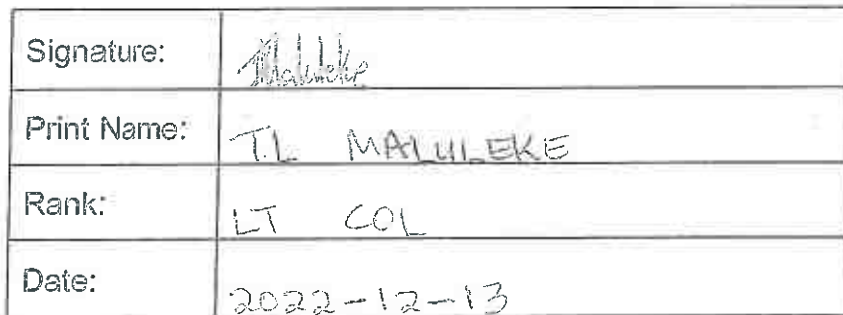 Signature: Maluleke
Print Name: T.L MALULEKE
Rank: LT COL
Date: 2022-12-13